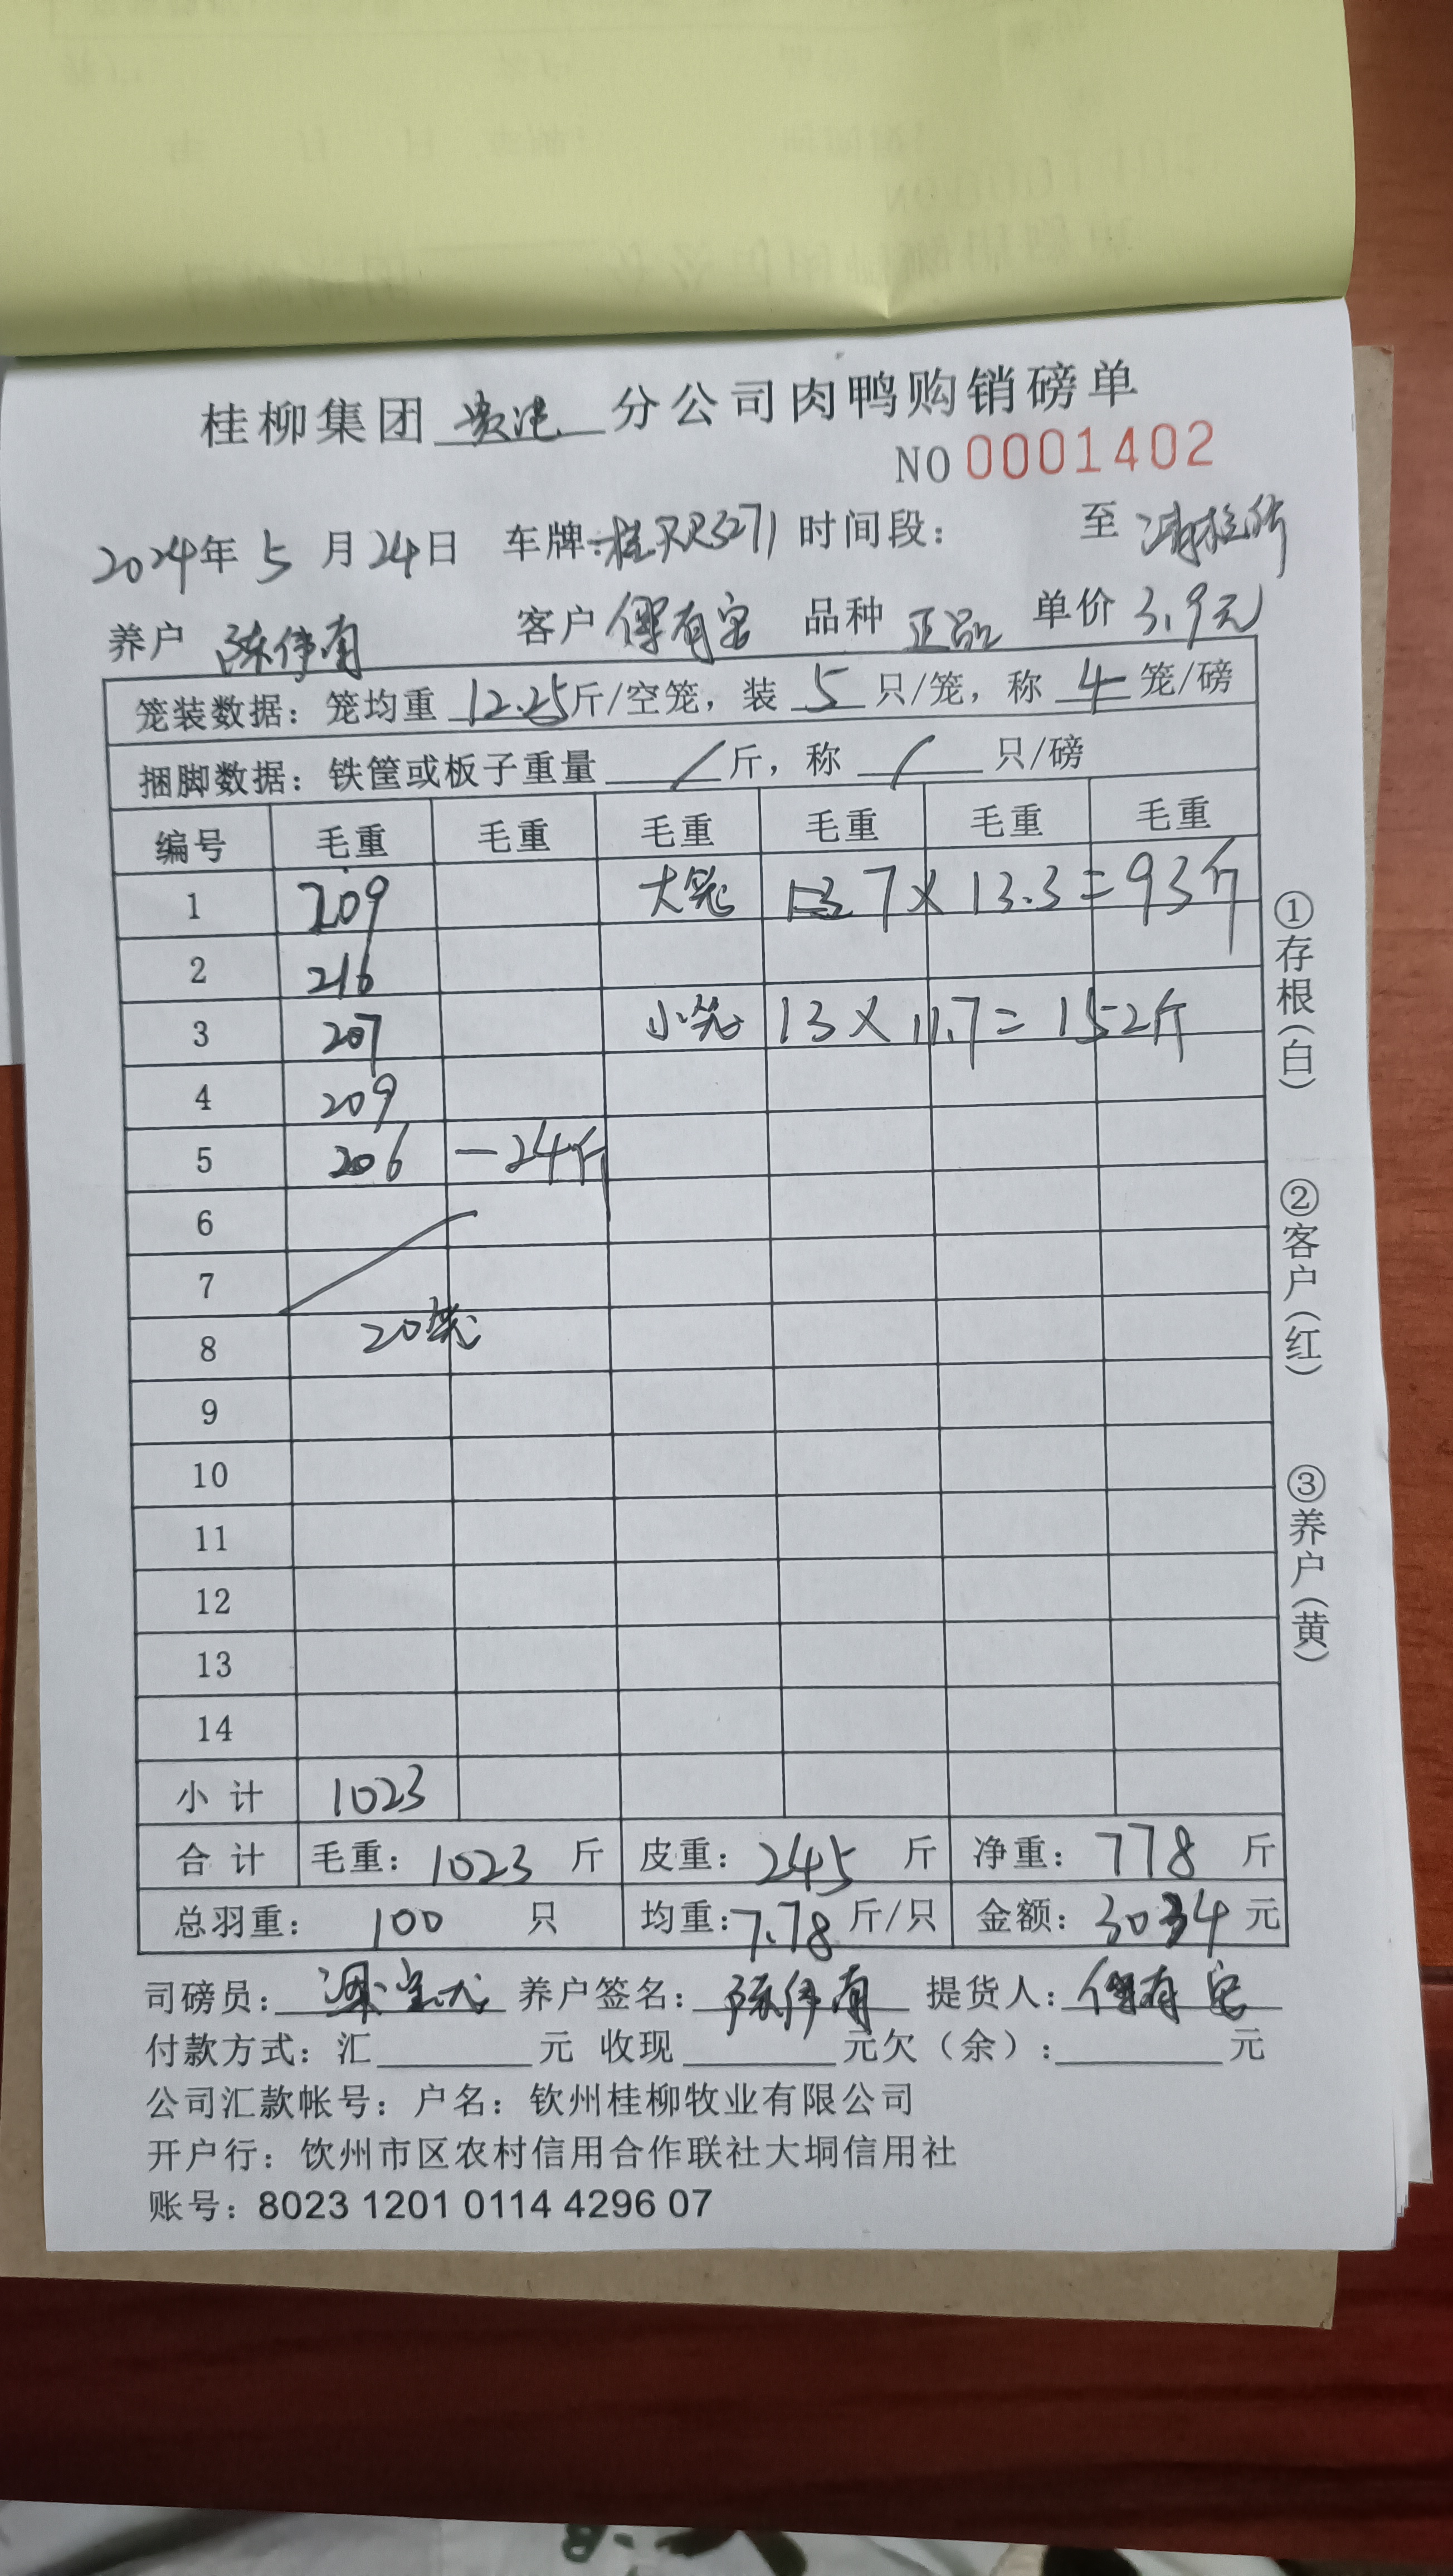 桂柳集团贵港分公司肉鸭购销磅单
NO 0001402
2024年5月24日 车牌:桂R R3271 时间段: 至
养户 陈伟南 客户 傅有宝 品种 正品 单价 3.9元
笼装数据：笼均重 12.25斤/空笼，装 5 只/笼，称 4 笼/磅
捆脚数据：铁筐或板子重量 / 斤，称 / 只/磅
编号 毛重 毛重 毛重 毛重 毛重 毛重
1 209 大笼 7 × 13.3 = 93斤
2 216
3 207 小笼 13 × 11.7 = 152斤
4 209
5 206 -24斤
6
7
8 20笼
9
10
11
12
13
14
小计 1023
合计 毛重：1023 斤 皮重：245 斤 净重：778 斤
总羽重：100 只 均重：7.78 斤/只 金额：3034 元
司磅员： 养户签名：陈伟南 提货人：傅有宝
付款方式：汇 元 收现 元欠（余）： 元
公司汇款帐号：户名：钦州桂柳牧业有限公司
开户行：饮州市区农村信用合作联社大垌信用社
账号：8023 1201 0114 4296 07
①存根（白）
②客户（红）
③养户（黄）